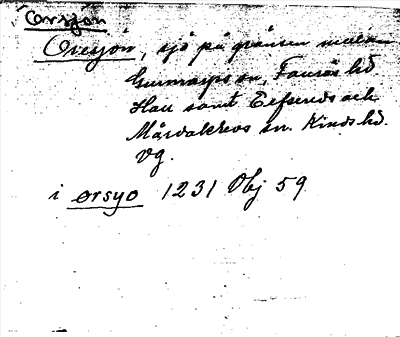 Örsjön
Öresjön, sjö på gränsen mellan
Gunnarps sn, Faurås hd
Hall samt Ljushults och
Mårdaklevs sn. Kinds hd.
Vg.
i orsyo 1231 Obj 59